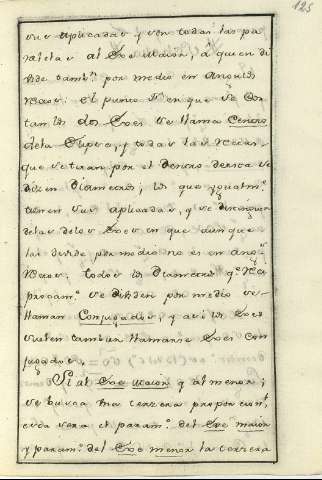 125
sus aplicadas y son todas las pa
ralelas al Exe maior, a quien di
vide tambn. por medio en angulos
rectos: el punto F. en que se cor
tan los dos Exes se llama Centro
dela Elipse, y todas las rectas,
que se tiran por el Centro derica se
dicen Diametros, los que igualmte.
tienen sus aplicadas, y se distinguen
delas delos Exes en que aunque
las divide por medio no es en angs.
rectos; todos los Diametros qe. reci
procamte. se dividen por medio se
llaman Conjugados, y asi los Exes
suelen tambien llamarse Exes con
jugados.
Si al Exe maior y al menor,
se busca una tercera proporcional,
esta sera el paramo. del Exe maior
y paramo. del Exe menor la tercera